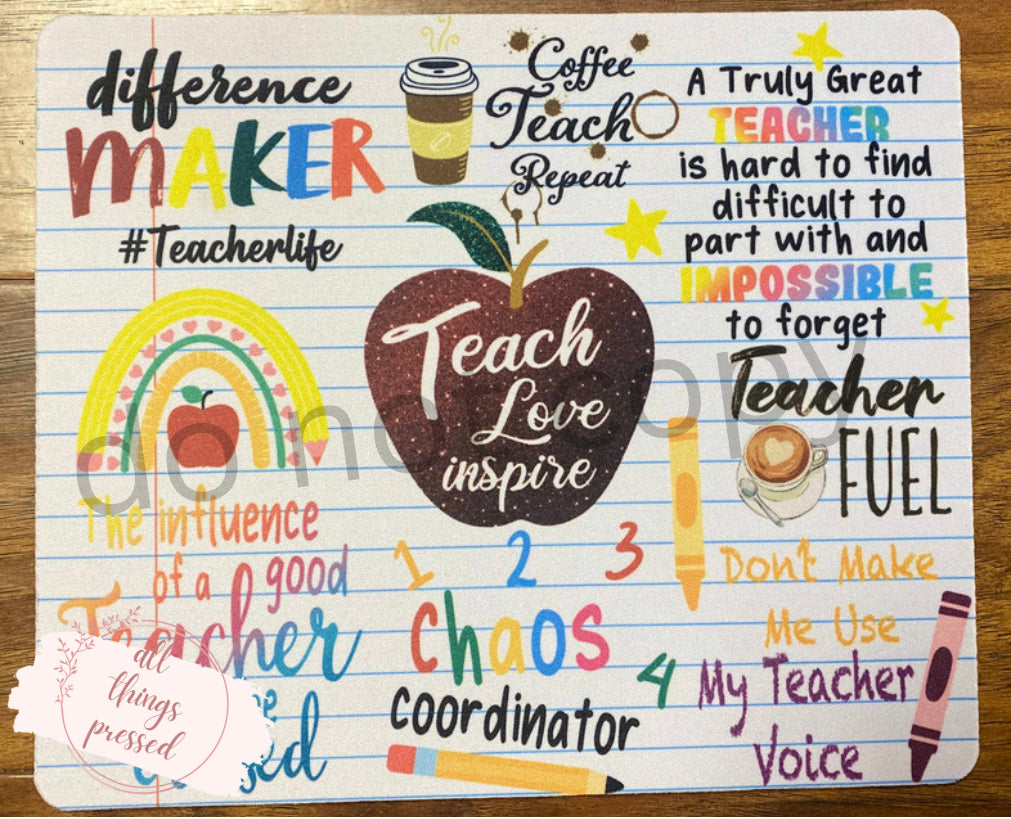 difference
MAKER
#Teacherlife
Coffee
Teach
Repeat
A Truly Great
TEACHER
is hard to find
difficult to
part with and
IMPOSSIBLE
to forget
Teach
Love
inspire
Teacher
FUEL
do not copy
The influence
of a good
Teacher
1 2 3
chaos
coordinator
4
Don't Make
Me Use
My Teacher
Voice
all
things
pressed